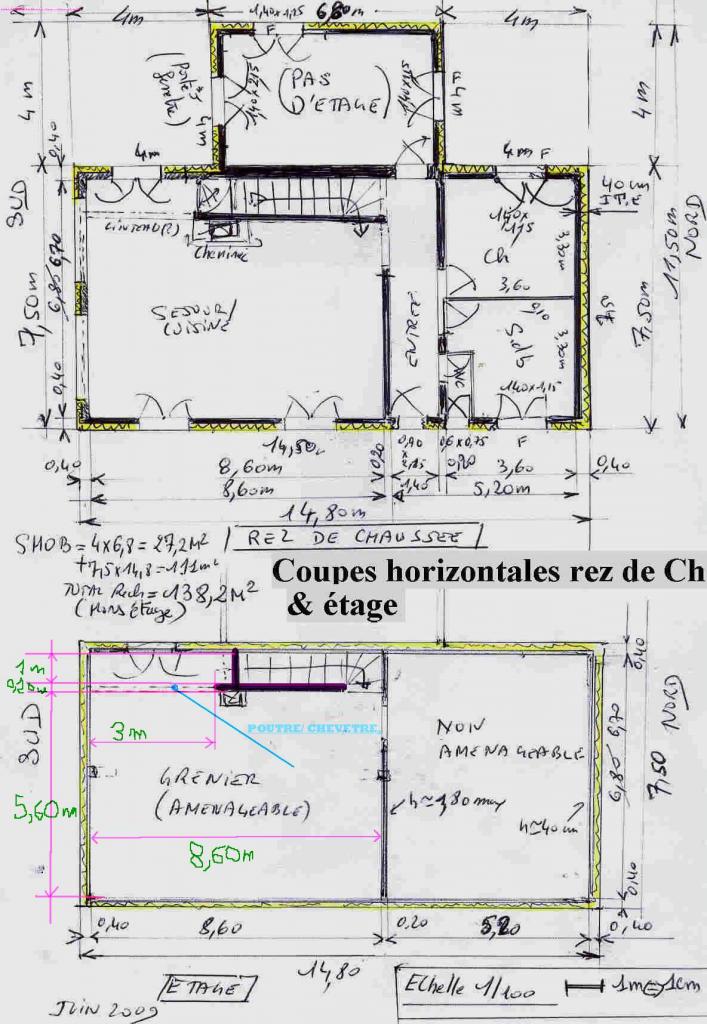 4m
1,40x1,15
6,80m
4m
F
4 m
(PAS
D'ETAGE)
1,40x2,15
1,40x2,15
4m
4m
4 m
0,40
4m
4m F
40 cm
I.T.E
SUD
NORD
LINTEAU(?)
Cheminée
140x
115
Ch
3,60
SEJOUR/
CUISINE
ENTREE
S.d.b
WC
0,10
140x1,15
7,50m
6,80 6,70
7,50m
11,50m
0,40
14,50
0,20
0,90
x
2,15
0,6x0,75
F
0,40
8,60m
0,20
3,60
0,40
8,60m
1,45
5,20m
14,80m
SHOB = 4x6,8 = 27,2M²
+ 7,5x14,8 = 111m²
TOTAL Rdch = 138,2M²
(HORS étage)
REZ DE CHAUSSEE
Coupes horizontales rez de Ch
& étage
1m
0,20m
3m
POUTRE/ CHEVETRE
SUD
NON
AMENAGEABLE
GRENIER
(AMENAGEABLE)
5,60m
8,60m
h≃1,80 max
h≃40 cm
0,40
6,80 6,70
7,50
NORD
0,40
0,40
8,60
0,20
5,20
0,40
14,80
ETAGE
JUIN 2009
Echelle 1/100
1m = 1cm